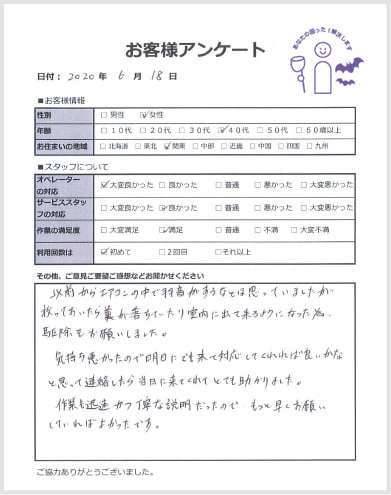 お客様アンケート
あなたの困った!解決します
日付: 2020 年 6 月 18 日
■お客様情報
性別 □男性 ☑女性
年齢 □10代 □20代 □30代 ☑40代 □50代 □60歳以上
お住まいの地域 □北海道 □東北 ☑関東 □中部 □近畿 □中国 □四国 □九州
■スタッフについて
オペレーターの対応 ☑大変良かった □良かった □普通 □悪かった □大変悪かった
サービススタッフの対応 ☑大変良かった □良かった □普通 □悪かった □大変悪かった
作業の満足度 □大変満足 ☑満足 □普通 □不満 □大変不満
利用回数は ☑初めて □2回目 □それ以上
その他、ご意見ご要望ご感想などお聞かせください
以前からエアコンの中で羽音がするなとは思っていましたが
放っておいたら糞が落ちていたり室内に出て来るようになった為、
駆除をお願いしました。
気持ち悪かったので明日にでも来て対応してくれれば良いかな
と思って連絡したら当日に来てくれてとても助かりました。
作業も迅速かつ丁寧な説明だったので もっと早くお願い
していればよかったです。
ご協力ありがとうございました。